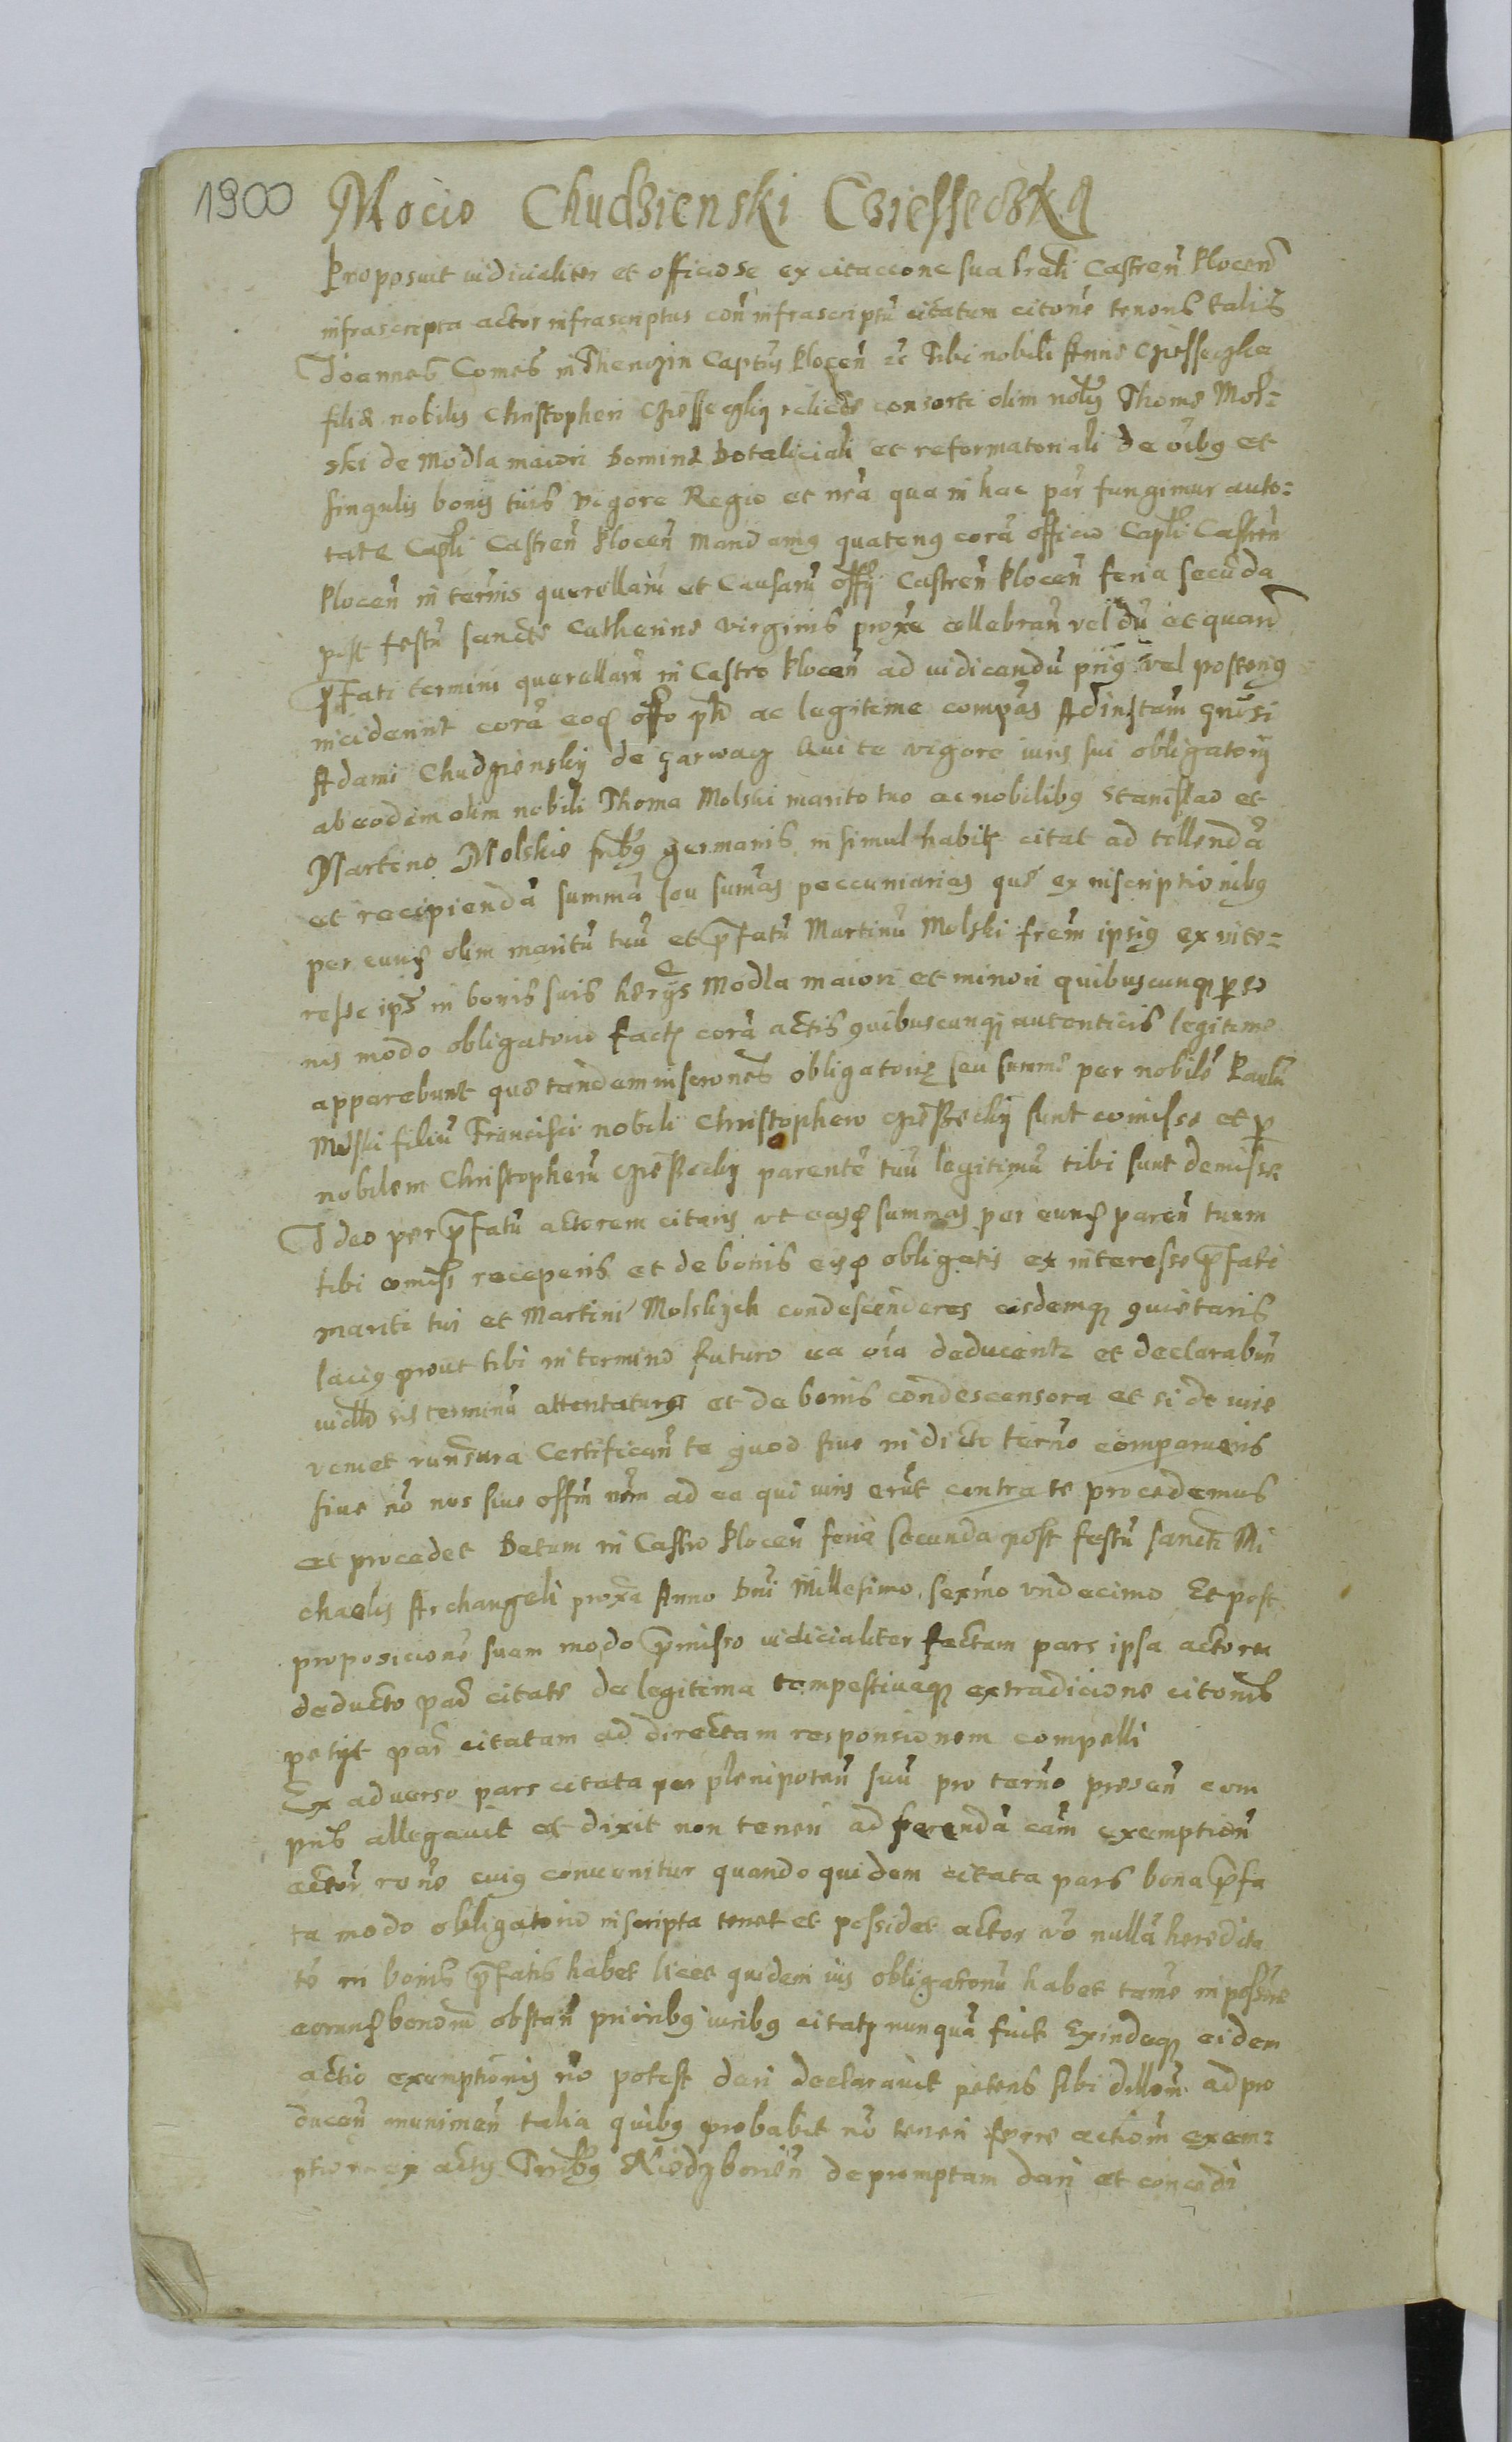 1900
Mocio Chudzienski Cziesseczka
Proposuit iudicialiter et officiose ex citacione sua Castren̄ Plocen̄
infrascripta actor infrascriptus con̄ infrascriptū citatum citon̄e tenoris talis
Joannes Comes in Thenczin Capt̄us Plocen̄ Tibi nobili Anne
filiæ nobilis Christopheri relicte consorti olim Thome Mol:
ski de Modla maiori Dominæ Dotaliciali et reformatoriali de oībꝫ et
singulis bonis tuis Vigore Regio et nr̄a qua in hac par̄ fungimur auto:
tate Capl̄i Castren̄ Plocen̄ Mandamꝫ quatenꝫ corā officio Capl̄i Castren̄
Plocen̄ in term̄is querellarū et Causarū offy Castren̄ Plocen̄ feria secūda
post festū sancte Catherine virginis prox̄e cellebran̄ vel dū et quand̄
p̄fati termini querellarū in Castro Plocen̄ ad iudicandū vel posterius
inciderint corā eoq̨ offo ac legitime compās Ad instan̄
Adami Chudziensky de Garwacz Qui te vigore iuris sui obligatorij
ab eodem olim nobili Thoma Molski marito tuo ac nobilibꝫ Stanislao et
Martino Molskie fr̄ibꝫ germanis insimul habit̄ citat ad tollendā
et recipiendā summā seu sum̄as peccuniarias que ex inscriptionibꝫ
per eunq̨ olim maritū tuū et p̄fatū Martinū Molski fr̄em ipsiꝫ ex inte:
resse ip̄ꝫ in bonis suis Modla maiori et minori quibuscunqꝫ
nis modo obligatorio fact̄ corā actis quibuscunqꝫ autenticis legitime
apparebunt que tandem obligatoriæ seu summe per nobilē Paulū
Molski filiū Francisci nobili Christophero sunt comisse et p̄
nobilem Christopherū parentē tuū legitimū tibi sunt demisse
Ideo per p̄fatū actorem citaris vt easq̨ summas per eunq̨ paren̄ tuum
tibi com̄iss recipens et de bonis eisq̨ obligatis ex interesse p̄fati
mariti tui et Martini Molskych condescenderes eisdemqꝫ quietaris
laciꝫ prout tibi in termino futuro ea oīa deducent̄ et declarabun̄
sis terminū attentatura et de bonis condescensora et si de iure
veniet Certifican̄ te quod sive in dicto term̄o comparueris
sive nō nos sive offm̄ nr̄m ad ea qui iuris erūt contra te procedemus
et procedet Datum in Castro Plocen̄ feria secunda post festū sancti Mi
chaelis Archangeli prox̄a Anno Dn̄i Millesimo sexm̄o vndecimo Et post
proposicionē suam modo p̄misso iudicialiter factam pars ipsa actorea
deducto par̄ citate de legitima tempestivaqꝫ extradicione citonis
petijt par̄ citatam ad directam responsionem compelli
Ex adverso pars citata per plenipoten̄ suū pro term̄o presen̄ com
pn̄s allegavit et dixit non teneri ad ferendā eam̄ exemption̄
actor̄ ron̄e cuiꝫ convenitur quando quidem citata pars bona p̄fa
ta modo obligatorio inscripta tenet et possidet actor vō nullā heredita
tē in bonis p̄fatis habet licet quidem ius obligatoriū habet tamē in possn̄e
eorunq̨ bonorū obstan̄ prioribꝫ iuribꝫ citat̄ nunquā fuit Exindeqꝫ eidem
actio exemptionis nō potest dari declaravit petens sibi dillon̄ ad pro
ducen̄ munimen̄ talia quibꝫ probabit nō teneri ferre action̄ exem:
ption ex actis Niedzborien̄ depromptam dari et concedi